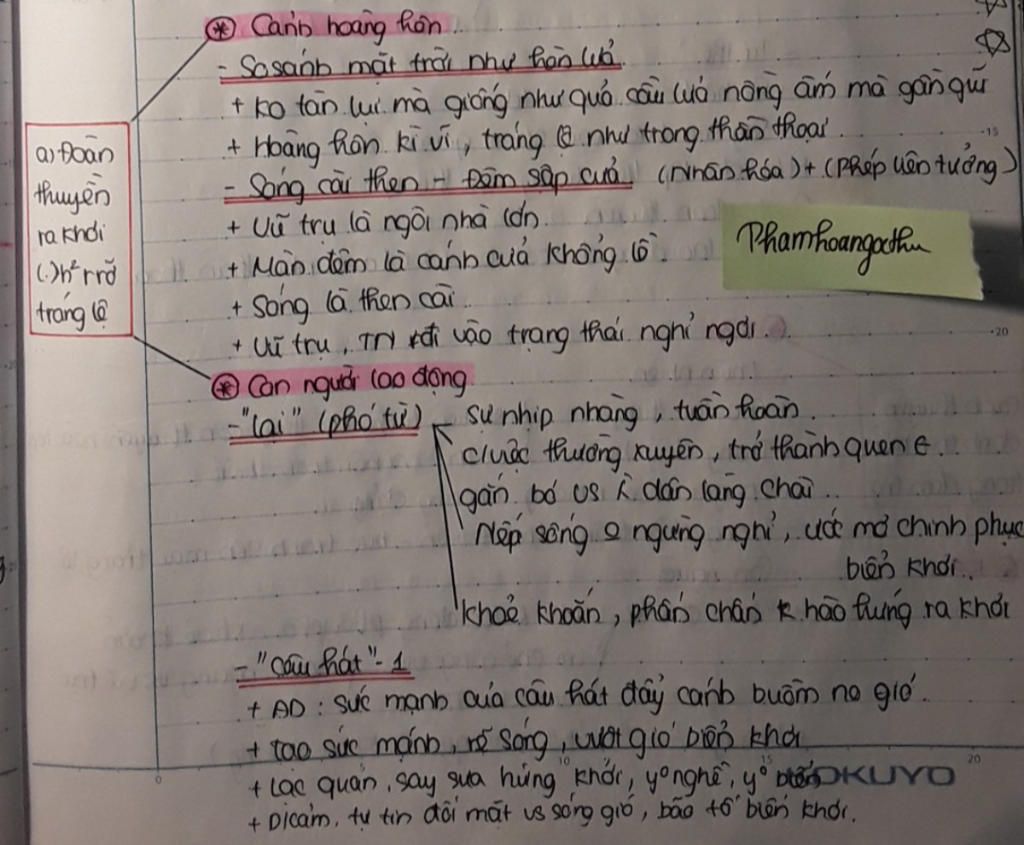 * Cảnh hoàng hôn
- So sánh mặt trời như hòn lửa.
+ Ko tàn lụi mà giống như quả cầu lửa nồng ấm mà gần gũi
+ Hoàng hôn kì vĩ, tráng lệ như trong thần thoại.
- Sóng cài then - Đêm sập cửa (Nhân hóa) + (Phép liên tưởng)
a) Đoàn
thuyền
ra khơi
(.) h² r rỡ
tráng lệ
+ Vũ trụ là ngôi nhà lớn.
+ Màn đêm là cánh cửa khổng lồ.
+ Sóng là then cài.
+ Vũ trụ, TN đi vào trạng thái nghỉ ngơi.
Phamhoangathu
* Con người lao động
- "lại" (phó từ) - sự nhịp nhàng, tuần hoàn.
c/việc thường xuyên, trở thành quen
gắn bó vs dân làng chài.
Nếp sống ngừng nghỉ, ước mơ chinh phục
biển khơi.
khoẻ khoắn, phấn chấn hào hứng ra khơi
- "Câu hát" - 1
+ AD: sức mạnh của câu hát đẩy cánh buồm no gió.
+ tạo sức mạnh, rẽ sóng, vượt gió biển khơi
+ Lạc quan, say sưa hứng khởi, yº nghề, yº biển
KOKUYO
+ D/cảm, tự tin đối mặt vs sóng gió, bão tố biển khơi.